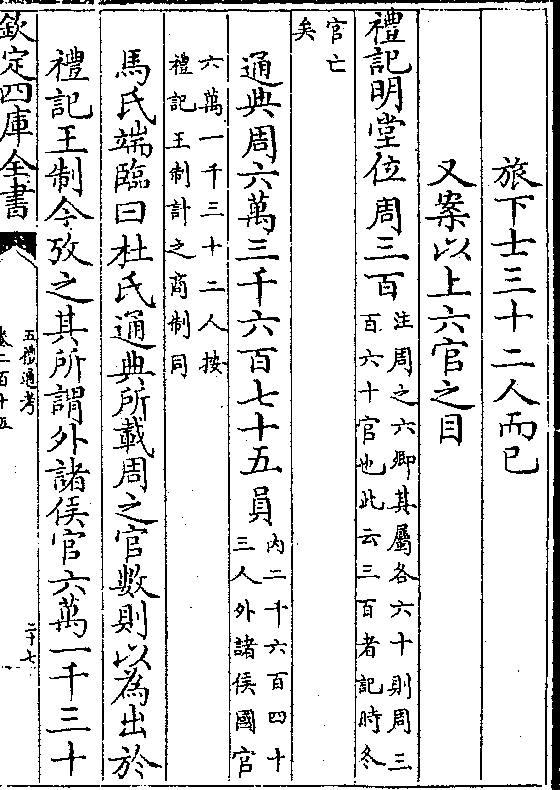 旅下士三十二人而已
又案以上六官之目
禮記明堂位周三百
注周之六卿其屬各六十則周三
百六十官也此云三百者記時冬
官亡
矣
通典周六萬三千六百七十五員
內二千六百四十
三人外諸侯國官
六萬一千三十二人按
禮記王制計之商制同
馬氏端臨曰杜氏通典所載周之官數則以為出於
禮記王制今攷之其所謂外諸侯官六萬一千三十
欽定四庫全書
五禮通考
卷二百十五
二十七